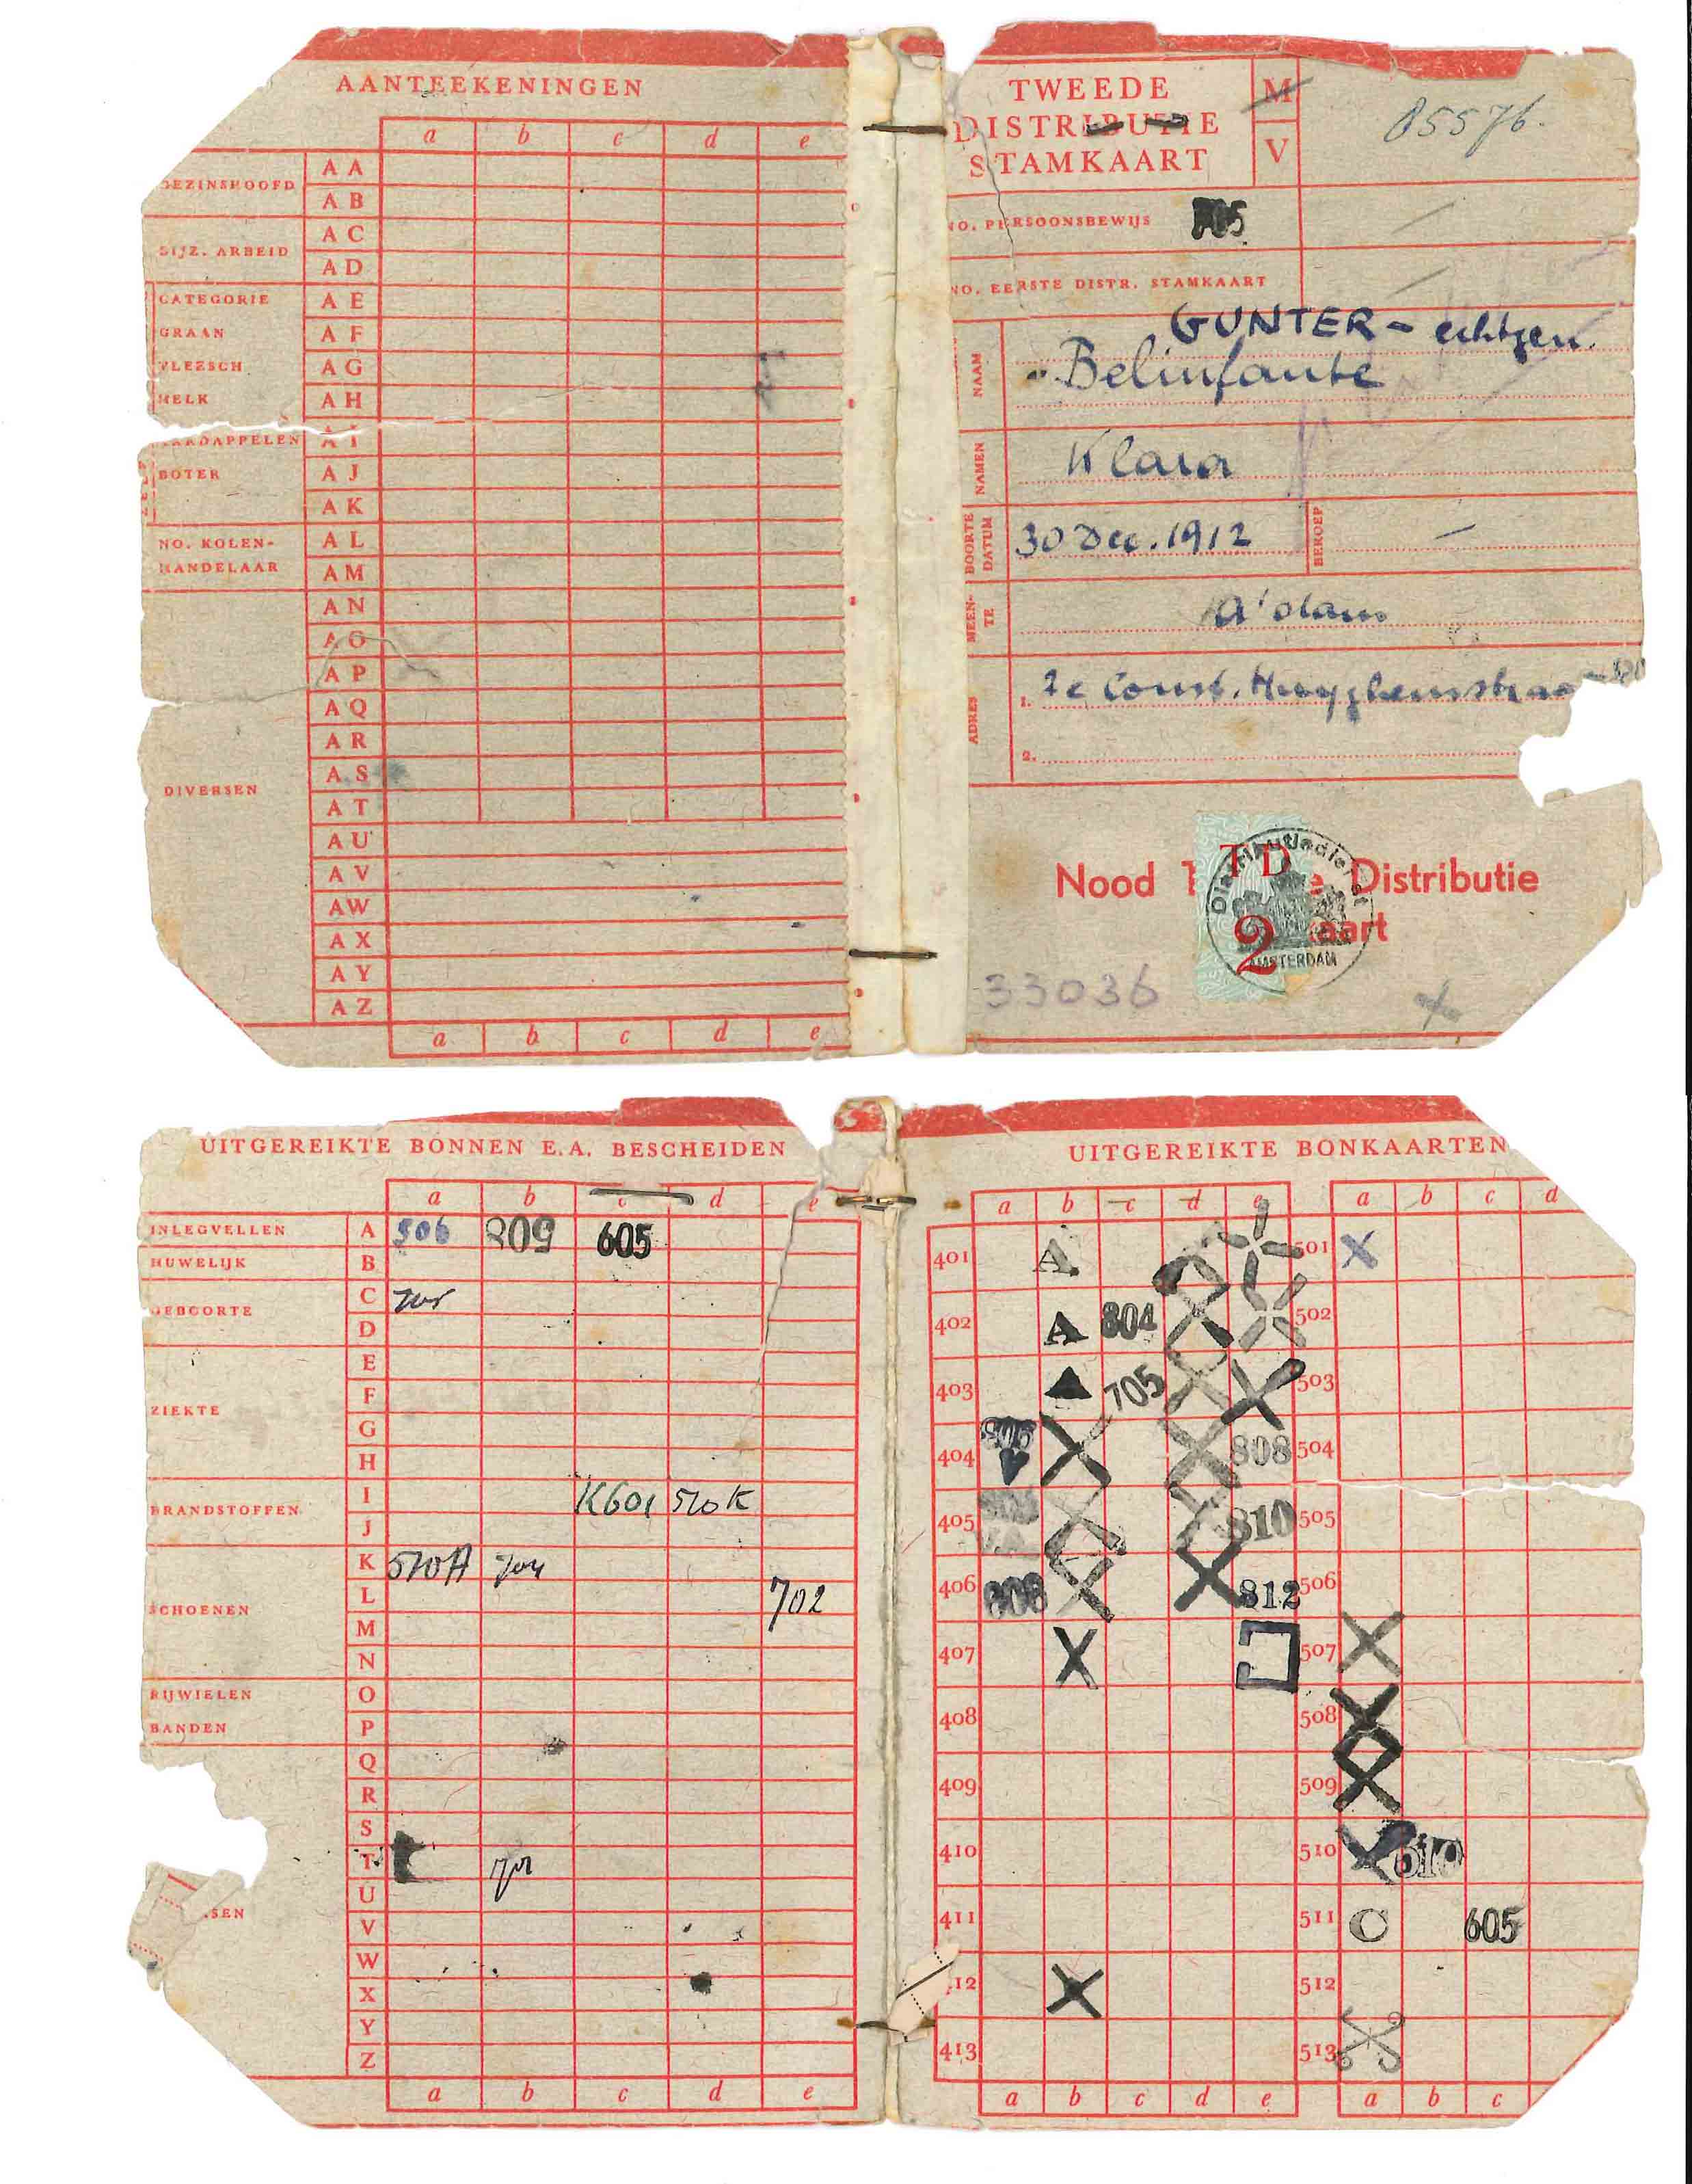 AANTEEKENINGEN
a b c d e
GEZINSHOOFD
AA
AB
BIJZ. ARBEID
AC
AD
CATEGORIE
AE
GRAAN
AF
VLEESCH
AG
MELK
AH
AARDAPPELEN
AI
BOTER
AJ
AK
NO. KOLEN-
AL
HANDELAAR
AM
AN
AO
AP
AQ
AR
AS
DIVERSEN
AT
AU
AV
AW
AX
AY
AZ
a b c d e
TWEEDE
DISTRIBUTIE
STAMKAART
M
V
05576.
NO. PERSOONSBEWIJS
NO. EERSTE DISTR. STAMKAART
GUNTER - echtgen.
NAAM
Belinfante
NAMEN
Klara
BOORTE
DATUM
30 Dec. 1912
BEROEP
—
MEEN-
TE
A'dam
ADRES
1. 2e Const. Huyghensstraa
2.
Nood Distributie
aart
TD
2
Distributiedienst
AMSTERDAM
33036
UITGEREIKTE BONNEN E.A. BESCHEIDEN
a b c d e
INLEGVELLEN
A 506 809 605
HUWELIJK
B
GEBOORTE
C
D
E
ZIEKTE
F
G
H
BRANDSTOFFEN
I K601 510K
J
K 510A 704
SCHOENEN
L 702
M
N
RIJWIELEN
O
BANDEN
P
Q
R
S
T
U
SEN
V
W
X
Y
Z
a b c d e
UITGEREIKTE BONKAARTEN
a b c d e a b c d
401 A 501 X
402 A 804 502
403 705 503
404 808 504
405 810 505
406 808 812 506
407 X 507 X
408 508 X
409 509 X
410 510 X 510
411 511 C 605
12 X 512
413 513
a b c d e a b c